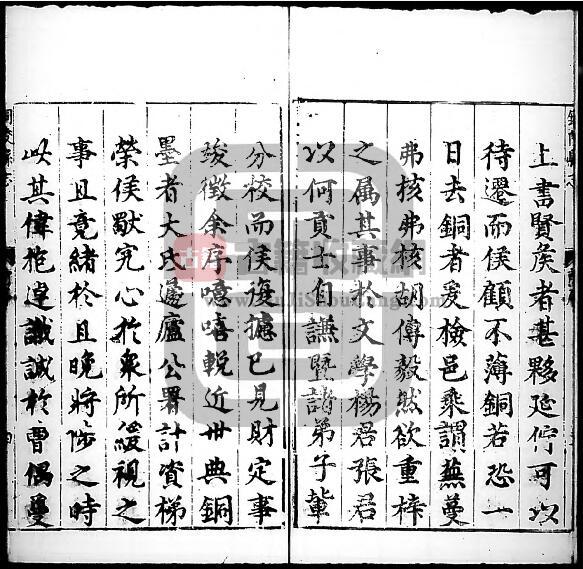 上書賢矦者甚夥延佇可以
待遷而侯顧不薄銅若恐一
日去銅者爰檢邑乘謂蕪蔓
弗核弗核胡傳毅然欲重梓
之属其事於文學楊君張君
以何貢士自謙暨諸弟子輩
分校而侯復攄已見財定事
竣徵余序噫嘻輓近世典銅
墨者大氐蘧廬公署計資梯
榮侯獨究心於衆所緩視之
事且竟緒於且晚將陟之時
此其偉抱達識誠於曹偶